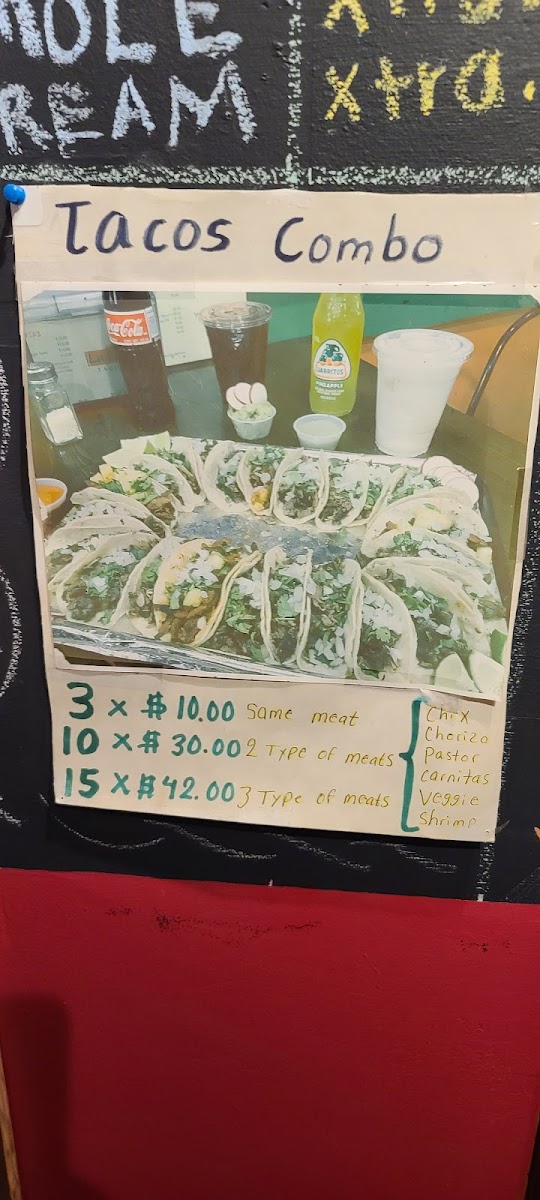 MOLE
REAM
xtra.
Tacos Combo
Coca-Cola
JARRITOS
PINEAPPLE
3 x $ 10.00 Same meat
10 x $ 30.00 2 Type of meats
15 x $ 42.00 3 Type of meats
Chix
Chorizo
Pastor
Carnitas
Veggie
Shrimp